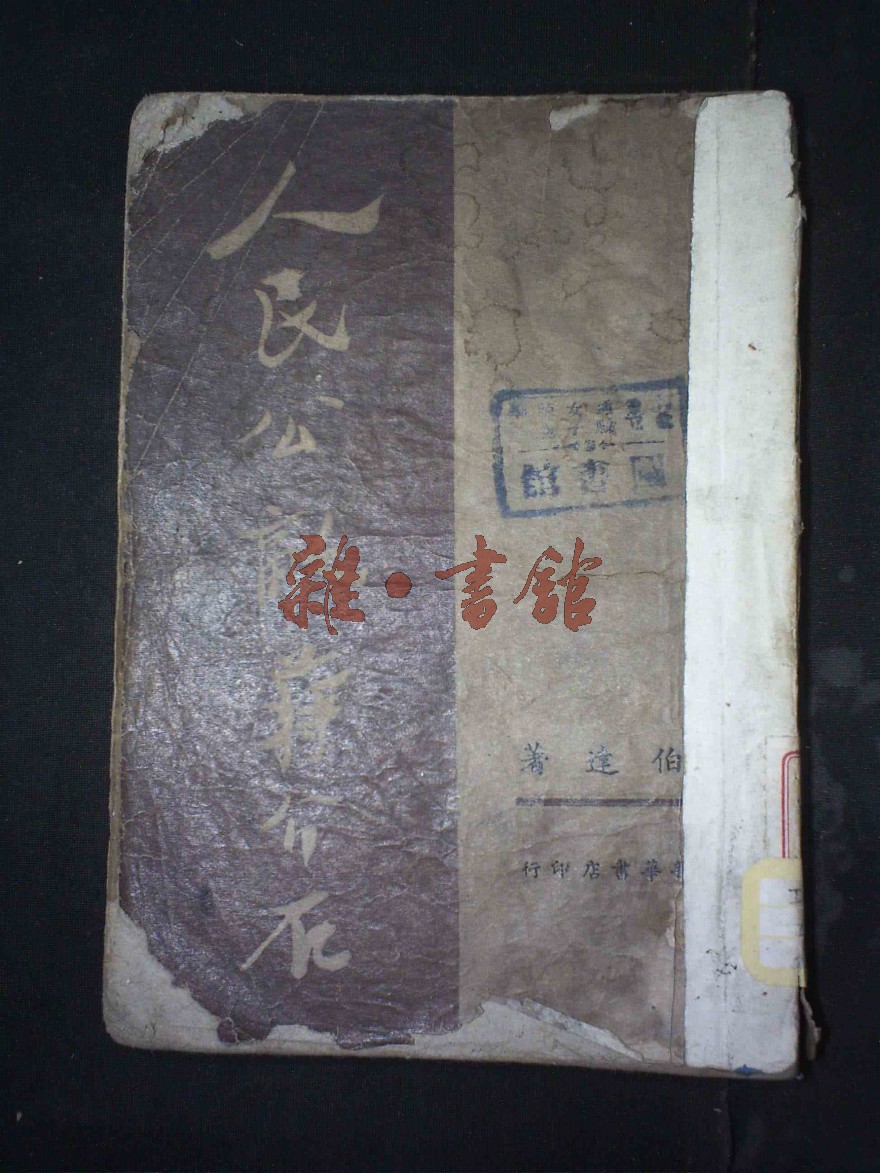 人民公敵蔣介石
雜·書館
伯達著
華書店印行
書館